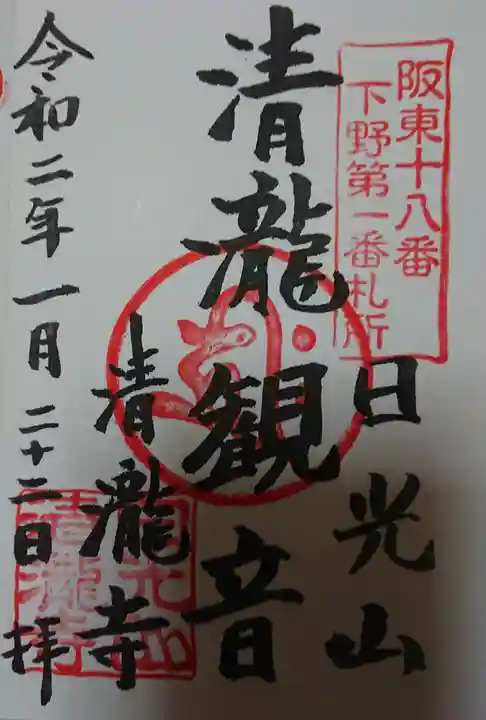 阪東十八番
下野第一番札所
日光山
清瀧観音
清瀧寺
日光山
清瀧寺
令和二年一月二十二日 拝